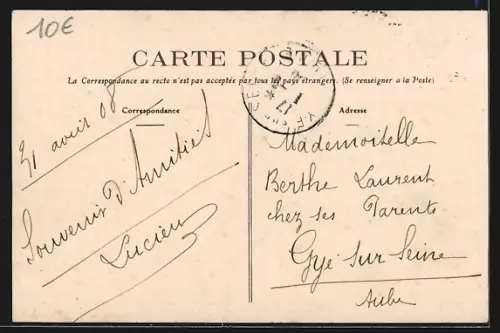 10€
CARTE POSTALE
La Correspondance au recto n'est pas acceptée par tous les pays étrangers. (Se renseigner à la Poste)
Correspondance
Adresse
21 avril 08
Souvenir d'Amitiés
Lucien
Mademoiselle
Berthe Laurent
chez ses Parents
Gyé-sur-Seine
Aube